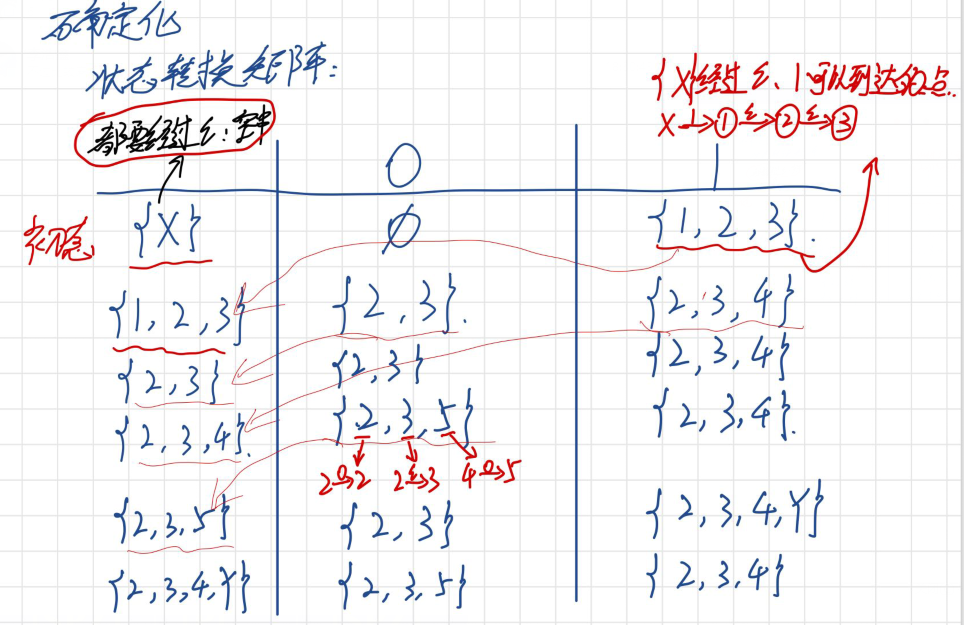 确定化
状态转换矩阵:
{X}经过ε、1可以到达的点.
都要经过ε:空串
X 1→ ① ε→ ② ε→ ③
0 1
初态 {X} ∅ {1, 2, 3}.
{1, 2, 3} {2, 3}. {2, 3, 4}
{2, 3} {2, 3} {2, 3, 4}
{2, 3, 4}. {2, 3, 5} {2, 3, 4}.
2 0→ 2 2 ε→ 3 4 0→ 5
{2, 3, 5} {2, 3} {2, 3, 4, Y}
{2, 3, 4, Y} {2, 3, 5} {2, 3, 4}